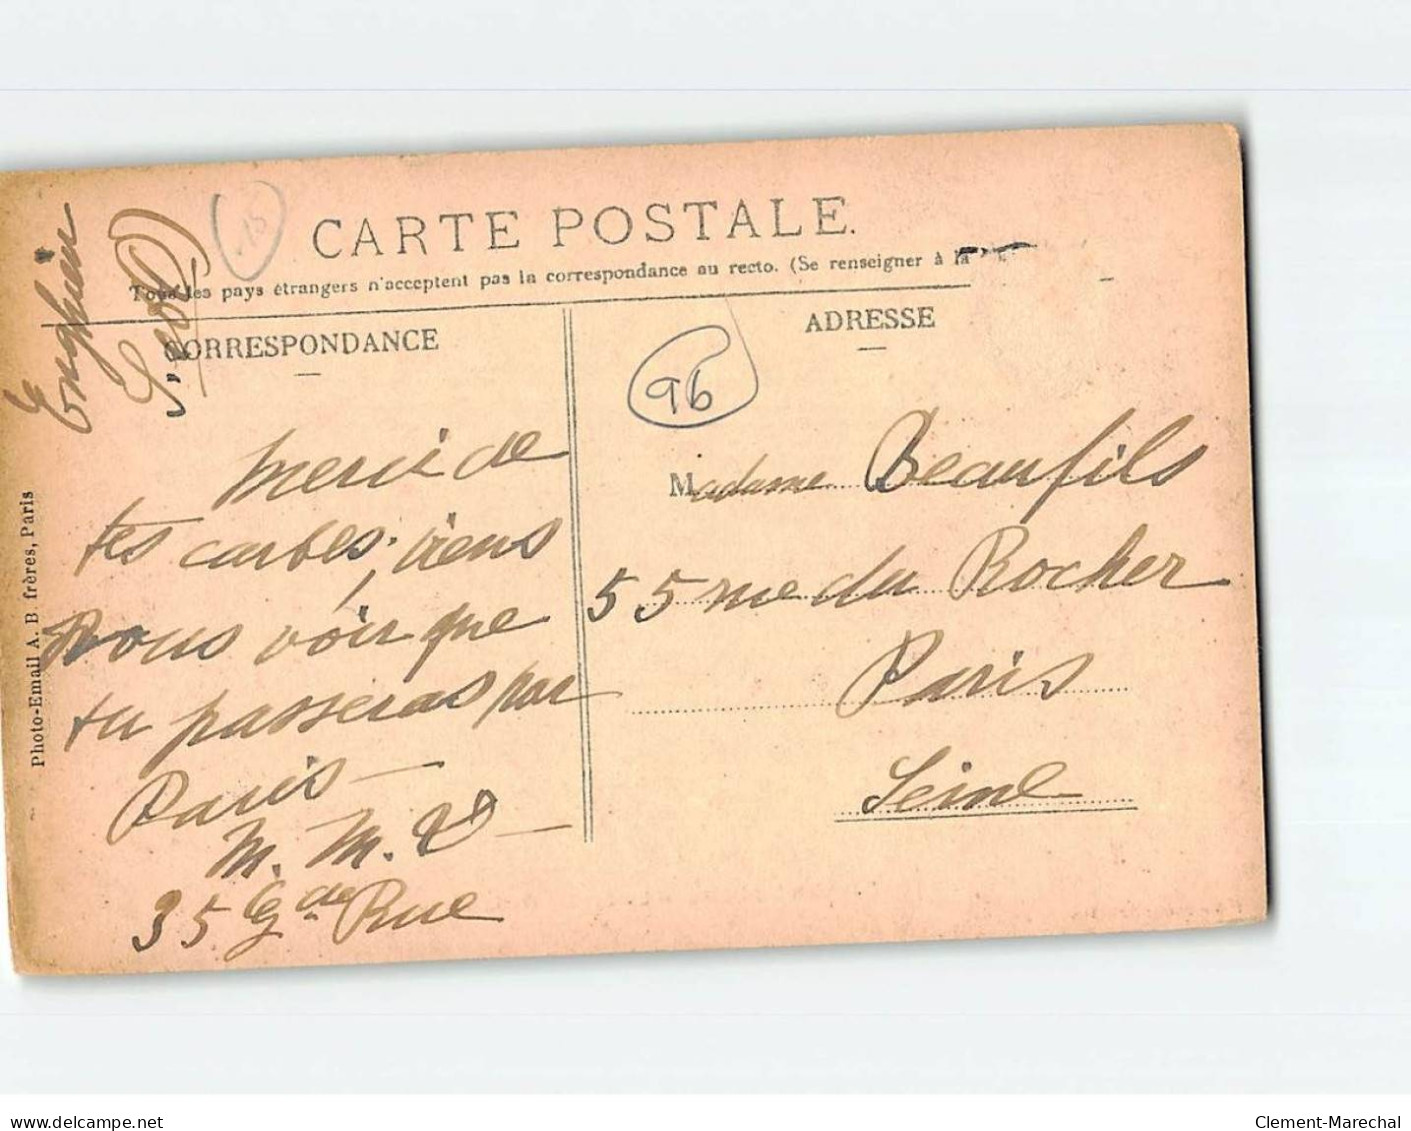 CARTE POSTALE.
Tous les pays étrangers n'acceptent pas la correspondance au recto. (Se renseigner à la
CORRESPONDANCE
ADRESSE
15
96
Enghien
Merci de
tes cartes, viens
nous voir que
tu passeras par
Paris —
M. M.
35 Gde Rue
Madame Beaufils
55 rue du Rocher
Paris
Seine
Photo-Email A. B frères, Paris
www.delcampe.net
Clement-Marechal